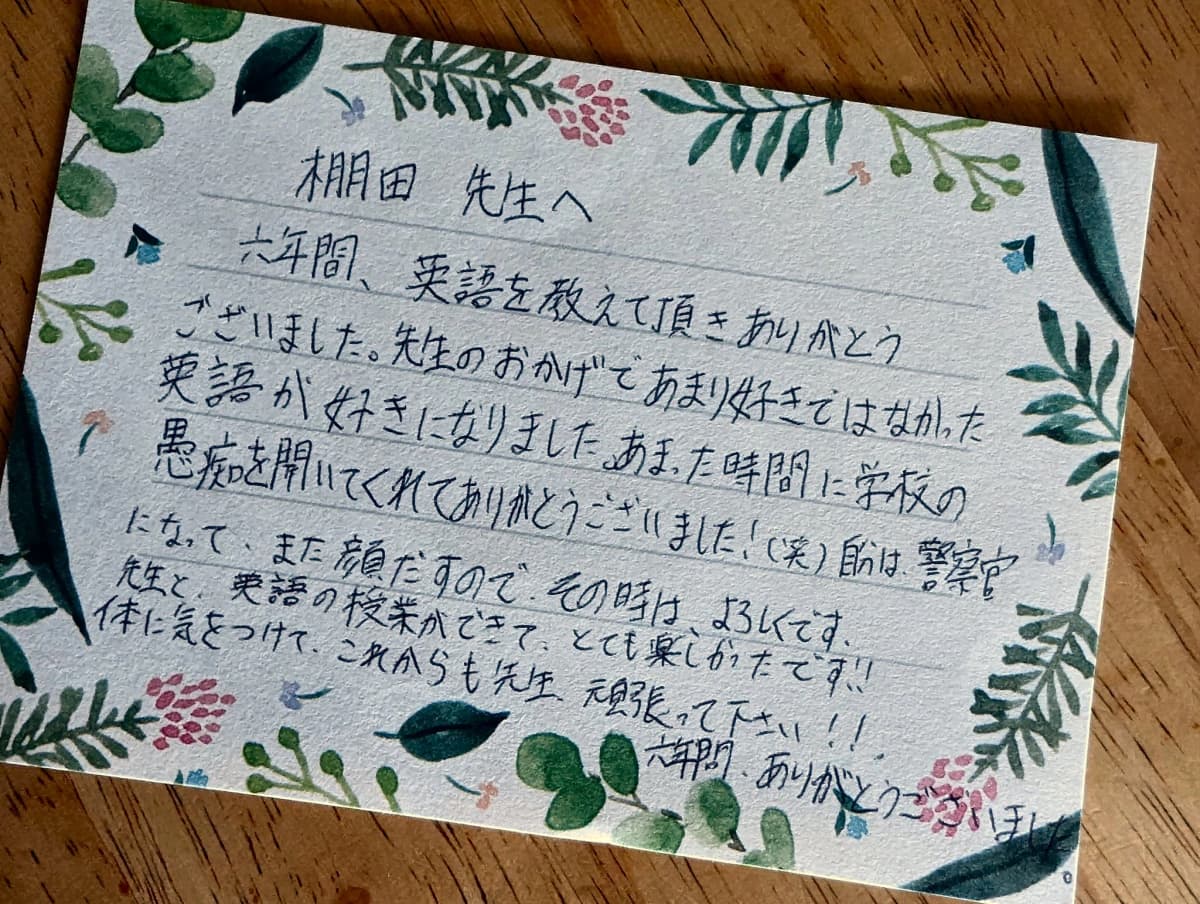 棚田 先生へ
六年間、英語を教えて頂きありがとう
ございました。先生のおかげであまり好きではなかった
英語が好きになりました。あまった時間に学校の
愚痴を開いてくれてありがとうございました!(笑)自分は、警察官
になって、また顔だすので、その時は、よろしくです、
先生と、英語の授業ができて、とても楽しかったです!!
体に気をつけて、これからも先生、頑張って下さい!!、
六年間、ありがとうございました。